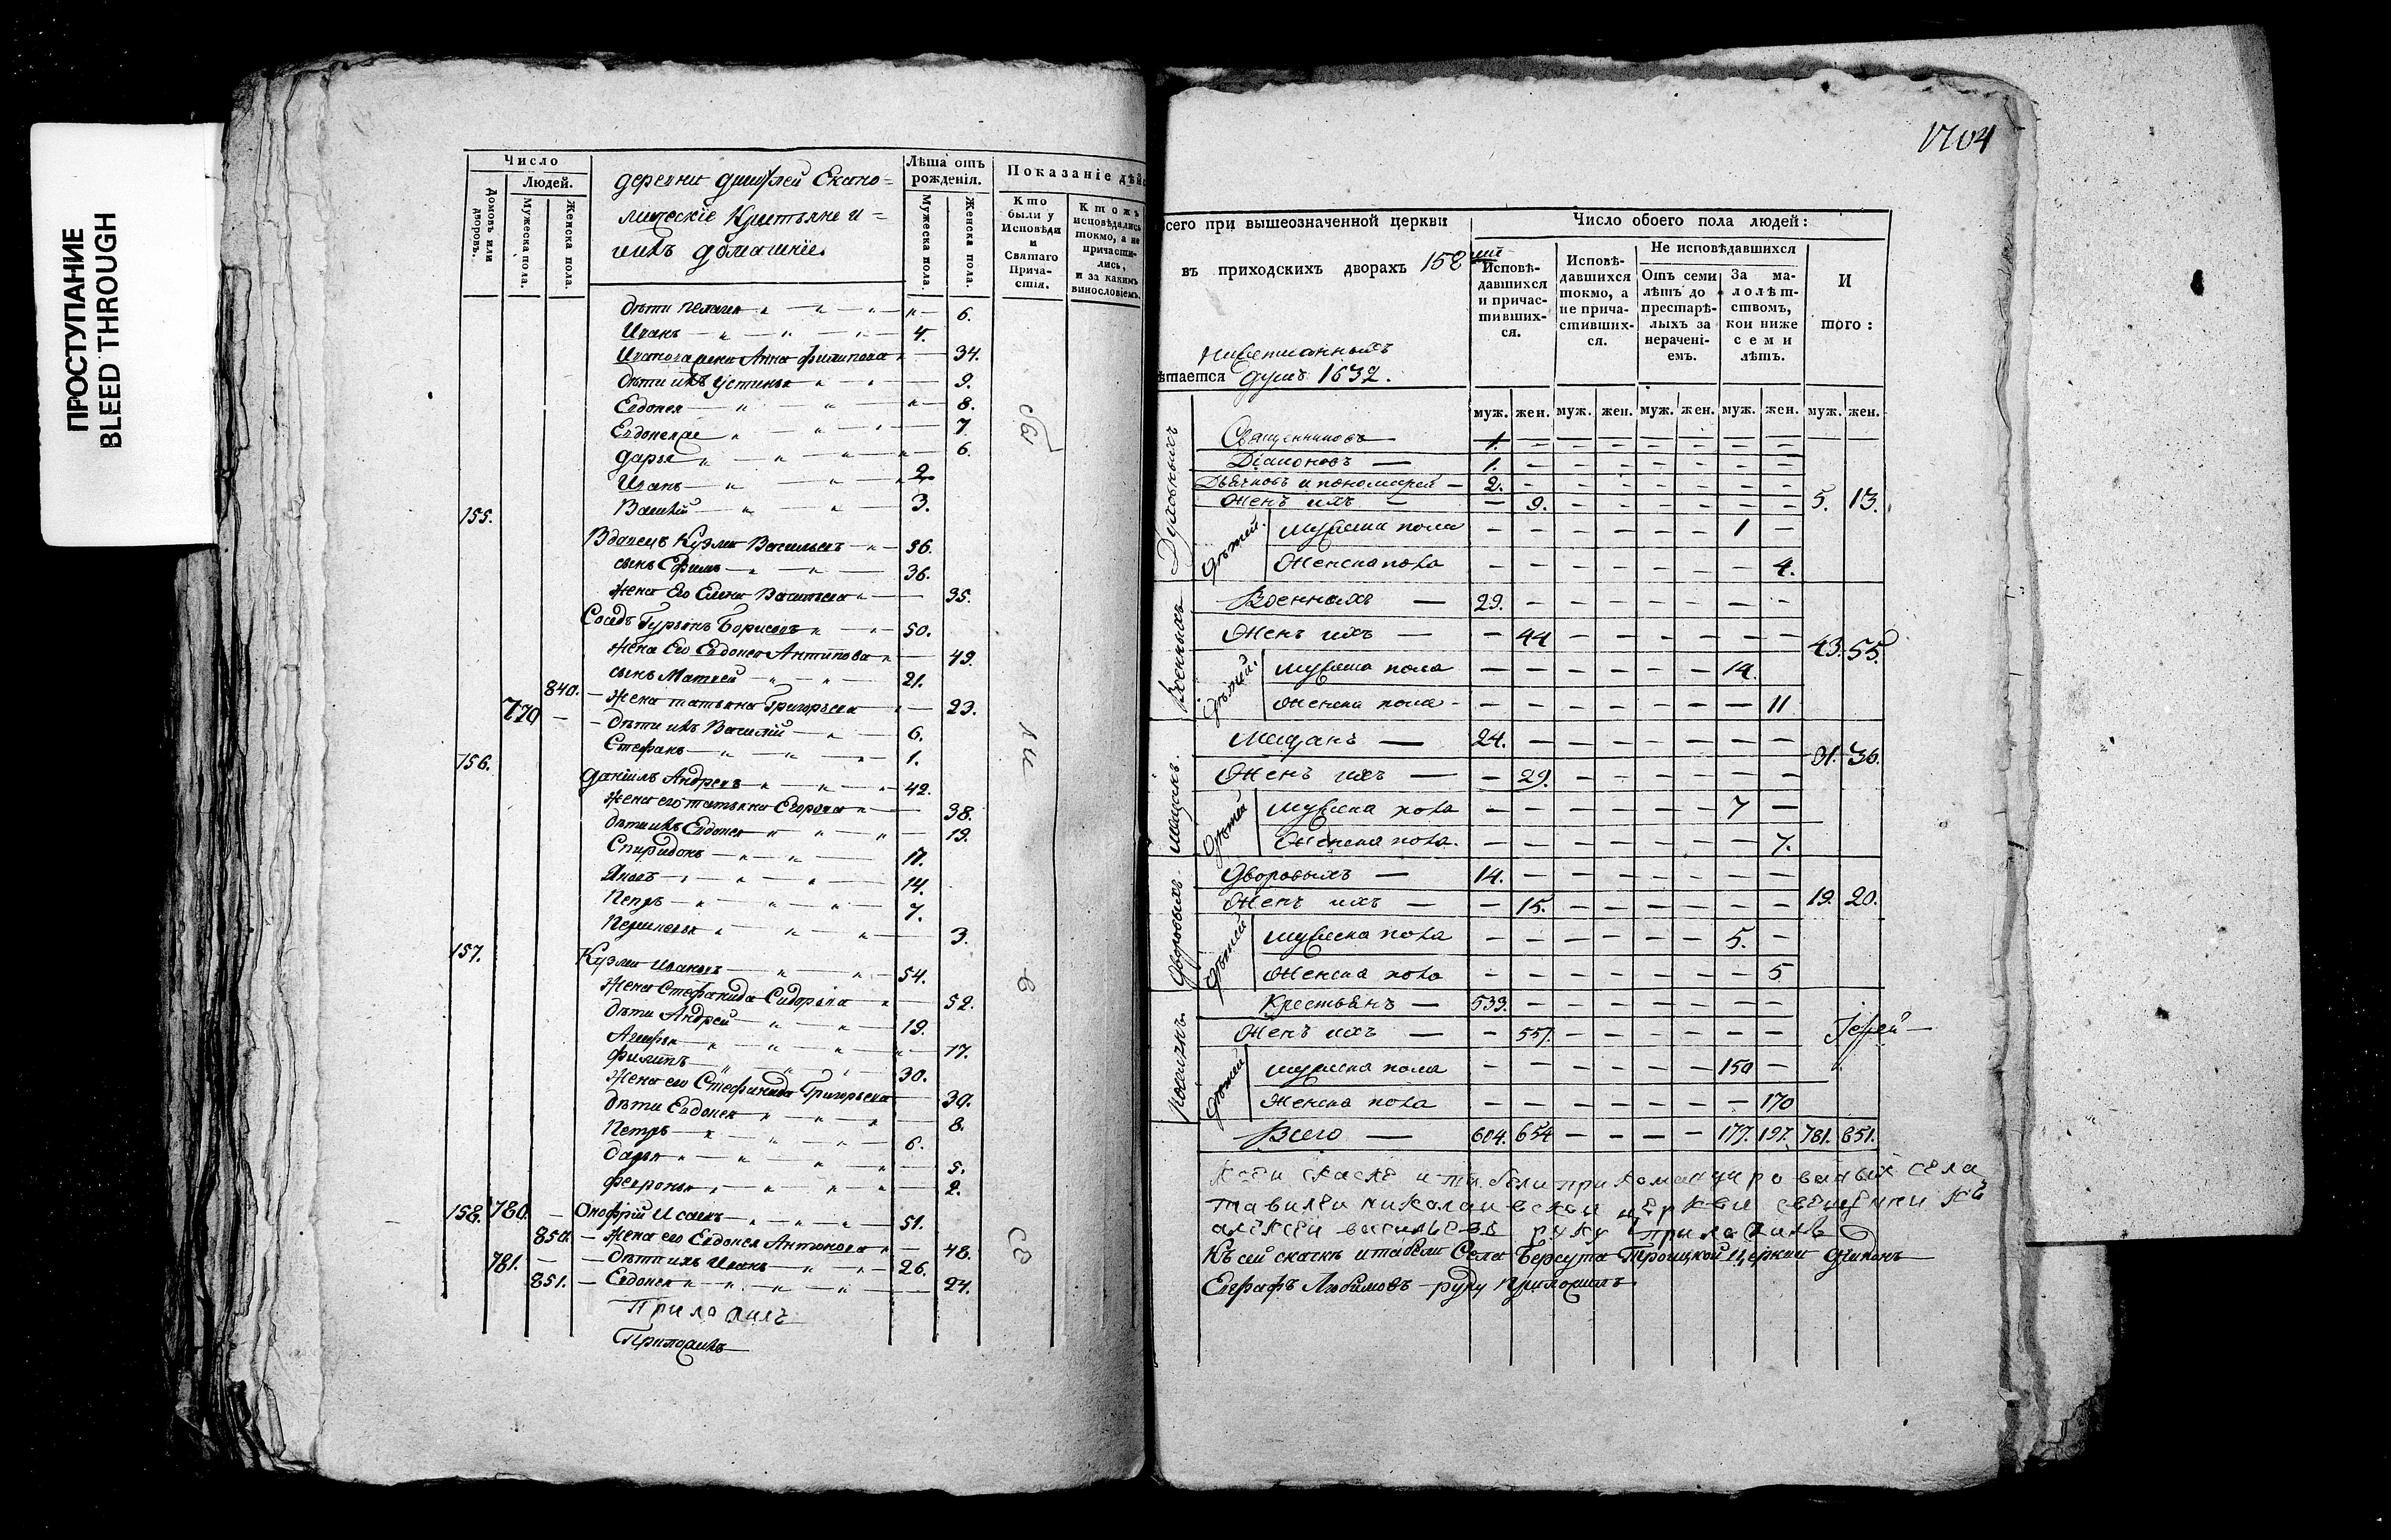 ПРОСТУПАНИЕ
BLEED THROUGH
Число
Людей.
Домовъ или дворовъ.
Мужеска пола.
Женска пола.
деревни Екано=
мическіе Крестьяне и=
ихъ домашніе
Лѣта отъ рожденія.
Мужеска пола.
Женска пола.
Показаніе дѣйс
Кто были у Исповѣди и Святаго Причастія.
Ктожъ исповѣдались токмо, а не причастились, и за какимъ винословіемъ.
дѣти Пелагея 6.
Иванъ 4.
Анна Филипова 34.
дѣти ихъ Устинья 9.
Евдокея 8.
Евдокея 7
Дарья 6.
Иванъ 2
Василій 3.
155.
Вдовецъ Кузма Васильевъ 56.
сынъ Ефимъ 36.
Жена Его Елена Васильева 35.
Сосѣдъ Гурьянъ Борисовъ 50.
Жена Его Евдокея Антипова 49.
сынъ Матвей 21.
840. Жена татьяна Григорьева 23.
770 дѣти ихъ Василій 6.
Стефанъ 1.
156.
Даніилъ Андреевъ 42.
Жена его татьяна Егорова 38.
дѣти ихъ Евдокея 19.
Спиридонъ 17.
Яковъ 14.
Петръ 7.
3.
157.
Кузма Ивановъ 54.
Жена Стефанида Сидорова 52.
дѣти Андрей 19.
Агафья 17.
Филипъ 30.
Жена его Стефанида Григорьева 30.
дѣти Евдокея 8.
Петръ 6.
Дарья 5.
Февронья 2.
158. 780. Онофрій Исаевъ 51.
850. Жена его Евдокея Антонова 48.
781. дѣти ихъ Иванъ 26.
851. Евдокея 24.
Приложилъ
Приложилъ
бы
ли
в
се
1704
сего при вышеозначенной церкви
въ приходскихъ дворахъ 158
душъ 1632.
Число обоего пола людей:
Исповѣдавшихся и причастившихся.
Исповѣдавшихся токмо, а не причастившихся.
Не исповѣдавшихся
Отъ семи лѣтъ до престарѣлыхъ за нерачені-емъ.
За малолѣтствомъ, кои ниже семи лѣтъ.
И того:
муж. жен. муж. жен. муж. жен. муж. жен. муж. жен.
Духовныхъ
Священниковъ 1.
Діаконовъ 1.
Дьячковъ и пономарей 2.
Женъ ихъ 9.
5. 13.
дѣтей
мужеска пола 1
Женска пола 4.
Военныхъ
Военныхъ 29.
Женъ ихъ 44
43. 55.
дѣтей
мужеска пола 14.
Женска пола 11
мещанъ
Мещанъ 24.
Женъ ихъ 29.
31. 36.
дѣтей
мужеска пола 7
Женска пола. 7.
Дворовыхъ
Дворовыхъ 14.
Женъ ихъ 15.
19. 20.
дѣтей
мужеска пола 5.
Женска пола 5
Крестьянъ 533.
Женъ ихъ 557.
Іерей
дѣтей
мужеска пола 150
Женска пола 170
Всего 604. 654 177. 197. 781. 851.
николаивской церкви свещенни
алексеи васильевъ руку приложилъ
Къ сей сказкѣ и табели Села Берсута Троицкой Церкви Дьяконъ
Евграфъ Любимовъ руку приложилъ